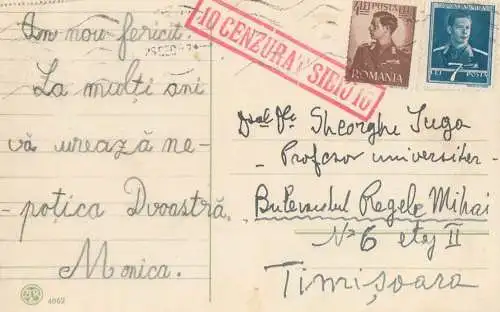 An nou fericit.
La mulți ani
vă urează ne-
poțica Dvoastră.
Monica.
4062
10 CENZURAT SIBIU 10
LEI POSTA
ROMANIA
LEI 7 POSTA
Gheorghe Juga
- Profesor universitar -
Bulevardul Regele Mihai
No 6 etaj II
Timișoara